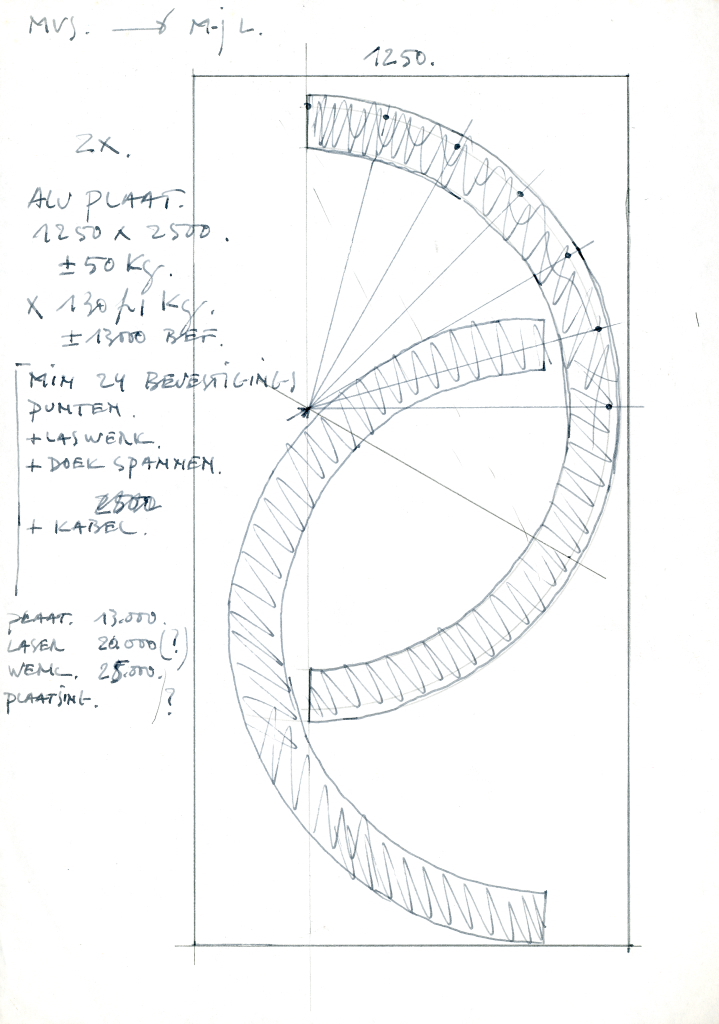 MVS. → M-j L.
1250.
2X.
ALU PLAAT.
1250 X 2500.
±50 Kg.
X 130 fr/ Kg.
±13000 BEF.
MIN 24 BEVESTIGINGS
PUNTEN.
+LASWERK.
+DOEK SPANNEN.
2500
+ KABEL.
PLAAT. 13.000.
LASER 20.000 (?)
WERK. 25.000.
PLAATSING. ?